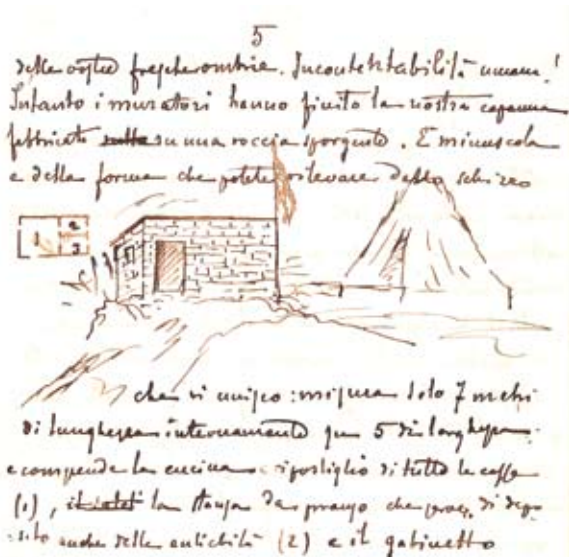 5
delle vostre fresche ombrie. Incontentabilità umana!
Intanto i muratori hanno finito la nostra capanna
fabbricata sulla su una roccia sporgente. È minuscola
e della forma che potete rilevare dallo schizzo
1 2
3
che vi unisco: misura solo 7 metri
di lunghezza internamente per 5 di larghezza
e comprende la cucina e ripostiglio di tutte le casse
(1), la stanza da pranzo che serve di depo
sito anche delle antichità (2) e il gabinetto